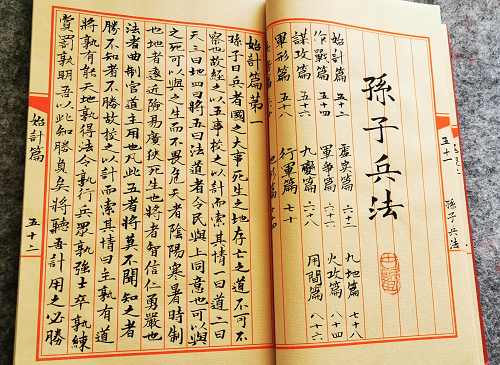 孫子兵法
五十一
孫子兵法
始計篇 五十二
作戰篇 五十四
謀攻篇 五十六
軍形篇 五十八
虛實篇 六十三
軍爭篇
九變篇 六十八
行軍篇 七十
九地篇 七十八
火攻篇 八十四
用間篇 八十六
始計篇第一
孫子曰兵者國之大事死生之地存亡之道不可不
察也故經之以五事校之以計而索其情一曰道二曰
天三曰地四曰將五曰法道者令民與上同意也可以與
之死可以與之生而不畏危天者陰陽寒暑時制
也地者遠近險易廣狹死生也將者智信仁勇嚴也
法者曲制官道主用也凡此五者將莫不聞知之者
勝不知者不勝故校之以計而索其情曰主孰有道
將孰有能天地孰得法令孰行兵眾孰強士卒孰練
賞罰孰明吾以此知勝負矣將聽吾計用之必勝
始計篇
五十二